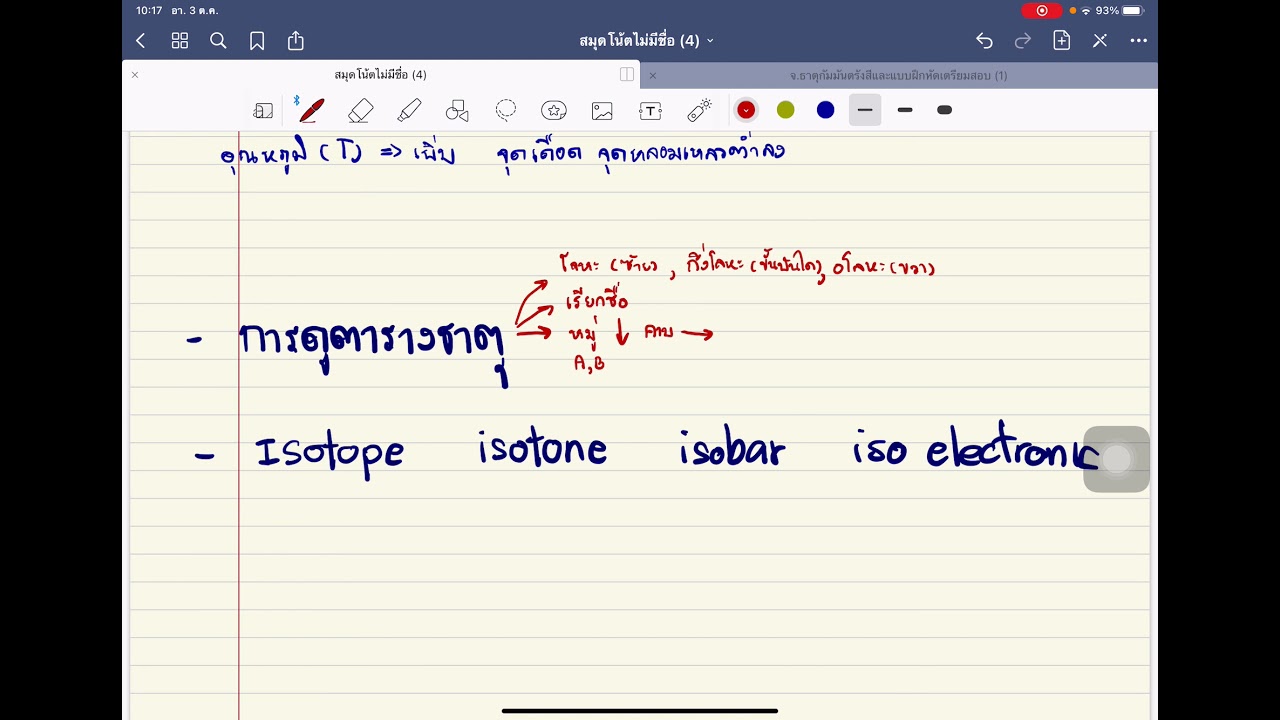 10:17 อา. 3 ต.ค. 93%
สมุดโน้ตไม่มีชื่อ (4)
สมุดโน้ตไม่มีชื่อ (4) จ.ธาตุกัมมันตรังสีและแบบฝึกหัดเตรียมสอบ (1)
อุณหภูมิ (T) => เพิ่ม จุดเดือด จุดหลอมเหลวต่ำลง
โลหะ (ซ้าย) , กึ่งโลหะ (ขั้นบันได), อโลหะ (ขวา)
เรียกชื่อ
- การดูตารางธาตุ หมู่ ↓ คาบ →
A, B
- Isotope isotone isobar iso electronic